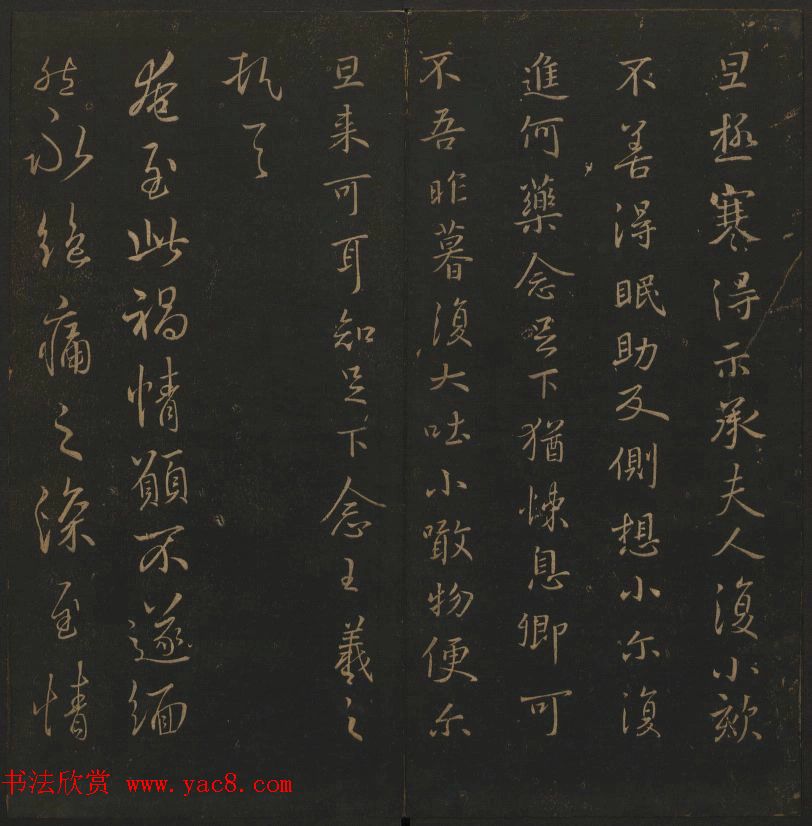 旦極寒得示承夫人復小欬
不善得眠助反側想小尔復
進何藥念足下猶悚息卿可
不吾昨暮復大吐小噉物便尔
旦来可耳知足下念王羲之
頓首
奄至此禍情願不遂緬
然永絕痛之深至情
书法欣赏 www.yac8.com